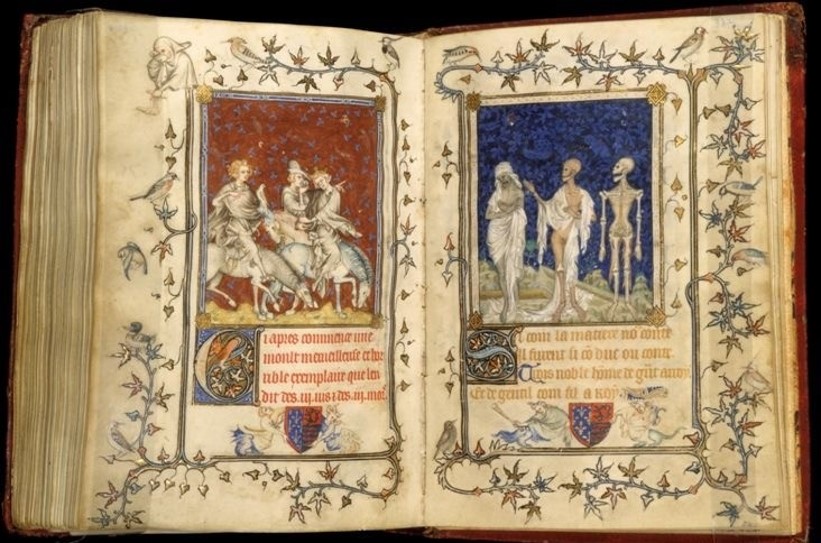 Ci apres commence une
moult merueilleuse et hor
rible exemplaire que len
dit des .iij. uis et des .iij. mors
Si com la matiere nous conte
Il furent si com duc ou conte
Trois noble homme de grant arroy
Et de gentil com fil a Roy